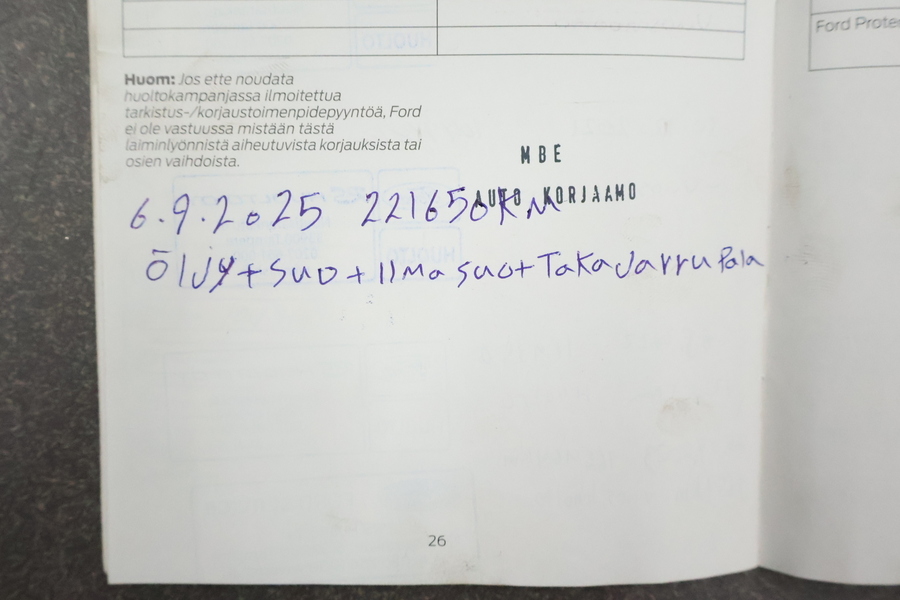 Ford Prote
Huom: Jos ette noudata
huoltokampanjassa ilmoitettua
tarkistus-/korjaustoimenpidepyyntöä, Ford
ei ole vastuussa mistään tästä
laiminlyönnistä aiheutuvista korjauksista tai
osien vaihdoista.
MBE
AUTO KORJAAMO
6.9.2025 221650KM
ÖlJy+Suo+IlMa suo+TaKaJarruPala
26